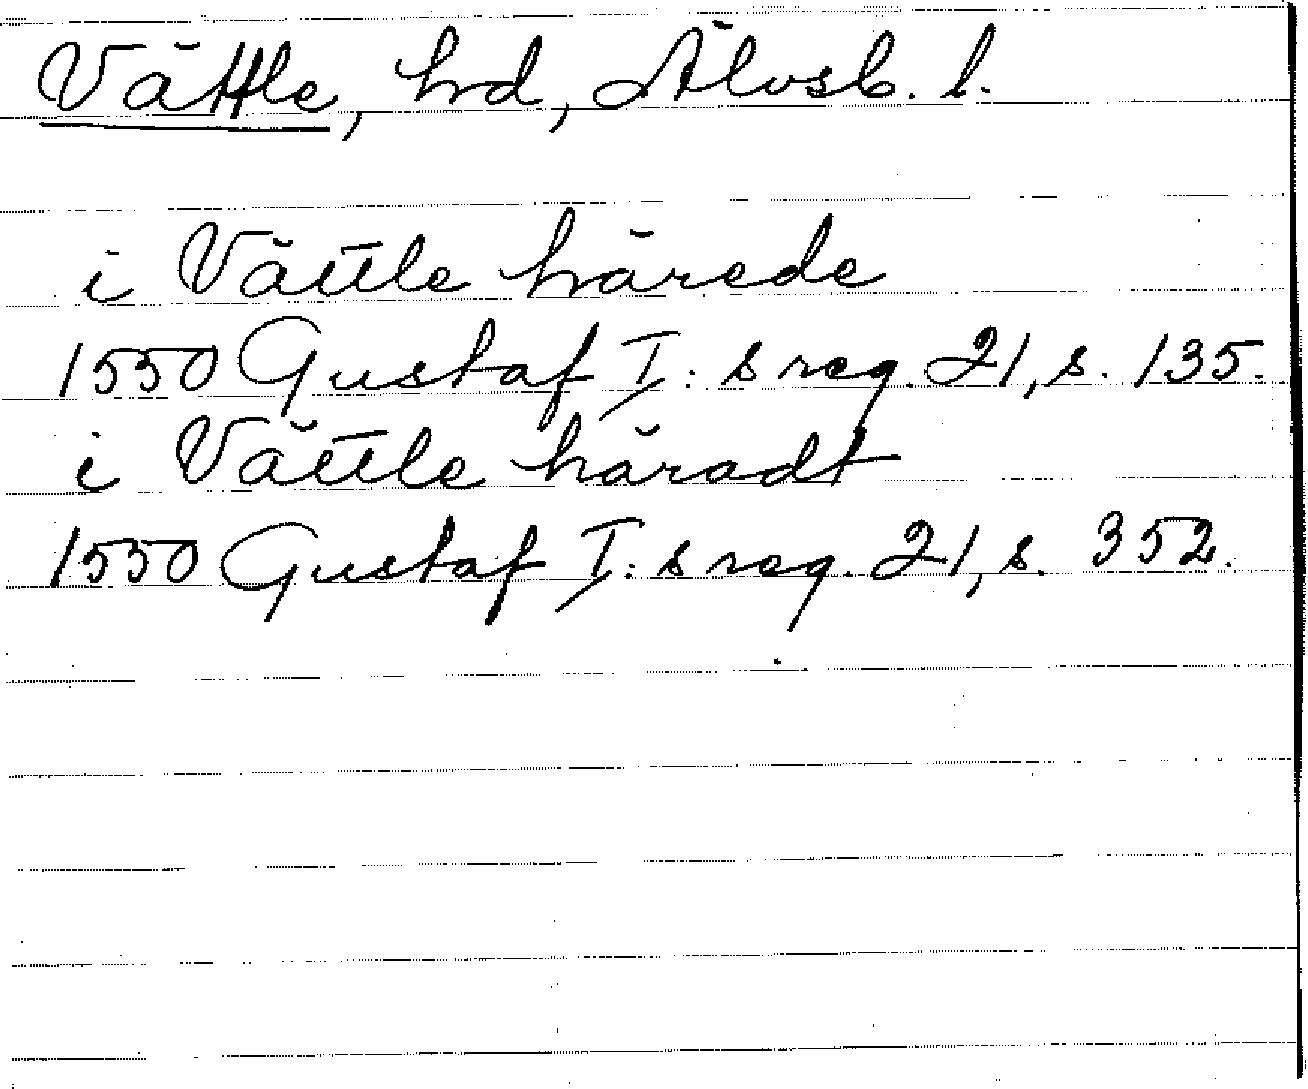 Vättle, hd, Älvsb. l.
i Vättle härede
1550 Gustaf I: s reg. 21, s. 135.
i Vättle häradt
1550 Gustaf I: s reg. 21, s. 352.